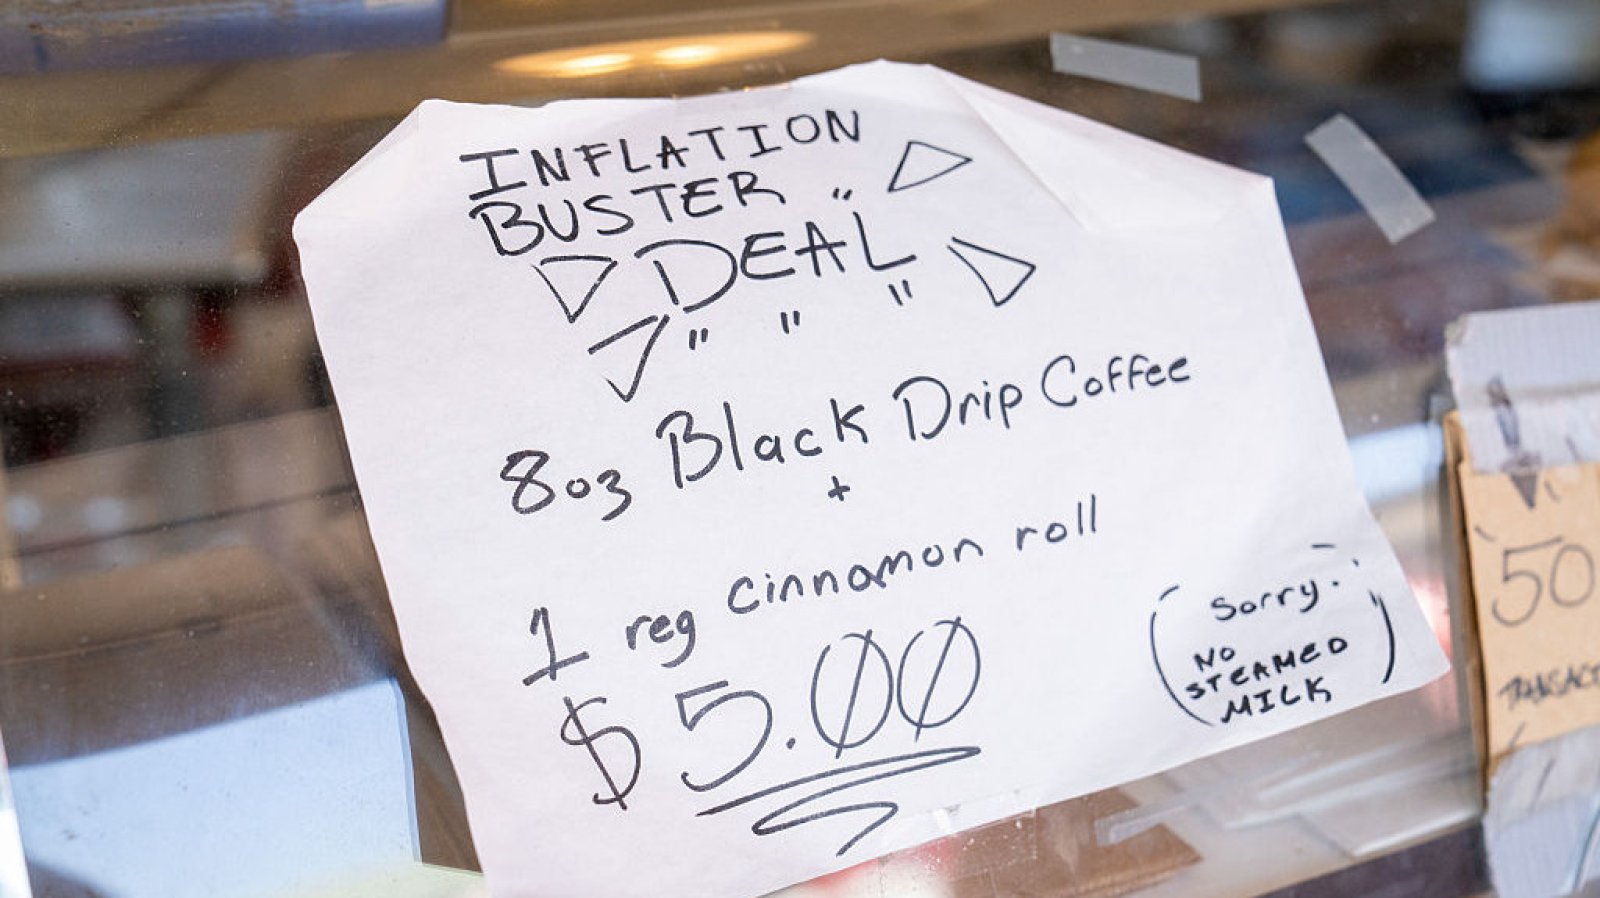 INFLATION
BUSTER
"DEAL"
8oz Black Drip Coffee
+
1 reg cinnamon roll
$5.00
Sorry.
NO
STEAMED
MILK
50